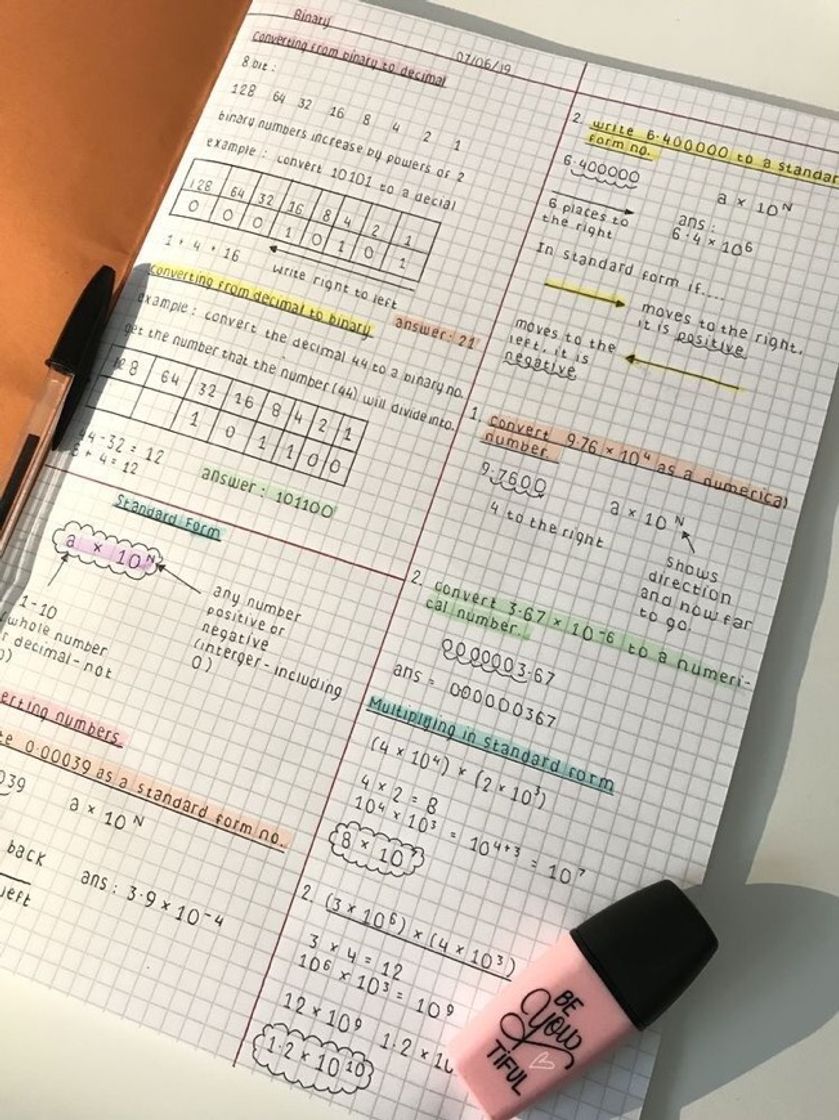 Binary
07/06/19
Converting from binary to decimal
8 bit:
128 64 32 16 8 4 2 1
binary numbers increase by powers of 2
example: convert 10101 to a decial
128 64 32 16 8 4 2 1
0 0 0 1 0 1 0 1
1 + 4 + 16
write right to left
answer: 21
Converting from decimal to binary
example: convert the decimal 44 to a binary no.
get the number that the number (44) will divide into.
128 64 32 16 8 4 2 1
1 0 1 1 0 0
44-32 = 12
8 + 4 = 12
answer: 101100
Standard Form
a × 10ᴺ
1-10
whole number
decimal - not
any number
positive or
negative
(interger - including
0)
erting numbers.
0.00039 as a standard form no.
039
a × 10ᴺ
back
left
ans: 3.9 × 10⁻⁴
2. write 6.400000 to a standar
form no.
6.400000
a × 10ᴺ
6 places to
the right
ans:
6.4 × 10⁶
In standard form if....
moves to the right,
it is positive
moves to the
left, it is
negative
1. convert 9.76 × 10⁴ as a numerical
number.
9.7600
a × 10ᴺ
4 to the right
shows
direction
and how far
to go.
2. convert 3.67 × 10⁻⁶ to a numeri-
cal number.
0000003.67
ans = 000000367
Multiplying in standard form
(4 × 10⁴) × (2 × 10³)
4 × 2 = 8
10⁴ × 10³ = 10⁴⁺³ = 10⁷
8 × 10⁷
2. (3 × 10⁶) × (4 × 10³)
3 × 4 = 12
10⁶ × 10³ = 10⁹
12 × 10⁹
1.2 × 10
1.2 × 10¹⁰
BE
YOU
TIFUL